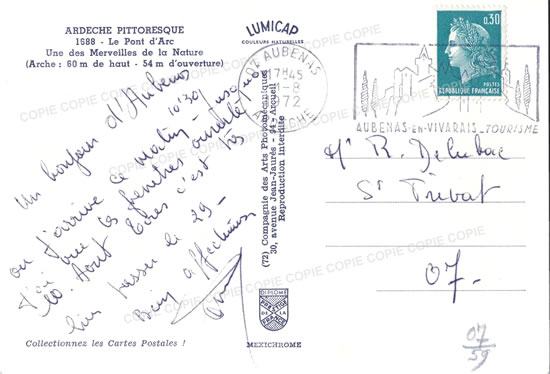 ARDECHE PITTORESQUE
1688 - Le Pont d'Arc
Une des Merveilles de la Nature
(Arche : 60 m de haut - 54 m d'ouverture)
LUMICAP
COULEURS NATURELLES
07 AUBENAS
17H45
1-8
1972
ARDECHE
0,30
POSTES
REPUBLIQUE FRANÇAISE
AUBENAS-EN-VIVARAIS_TOURISME
Un bonjour d'Aubenas
ou j'arrive ce matin 10h30
J'ai les fenêtres
10 Août c'est
le 29-
Bien affectueux
(72) Compagnie des Arts Photomécaniques
30, avenue Jean-Jaurès - 94 - Arcueil
Reproduction interdite
Mr R. Delubac
St Privat
07.
DIPLOME
PRESTIGE
DE LA
FRANCE
MEXICHROME
Collectionnez les Cartes Postales !
07
59
COPIE COPIE COPIE COPIE COPIE COPIE